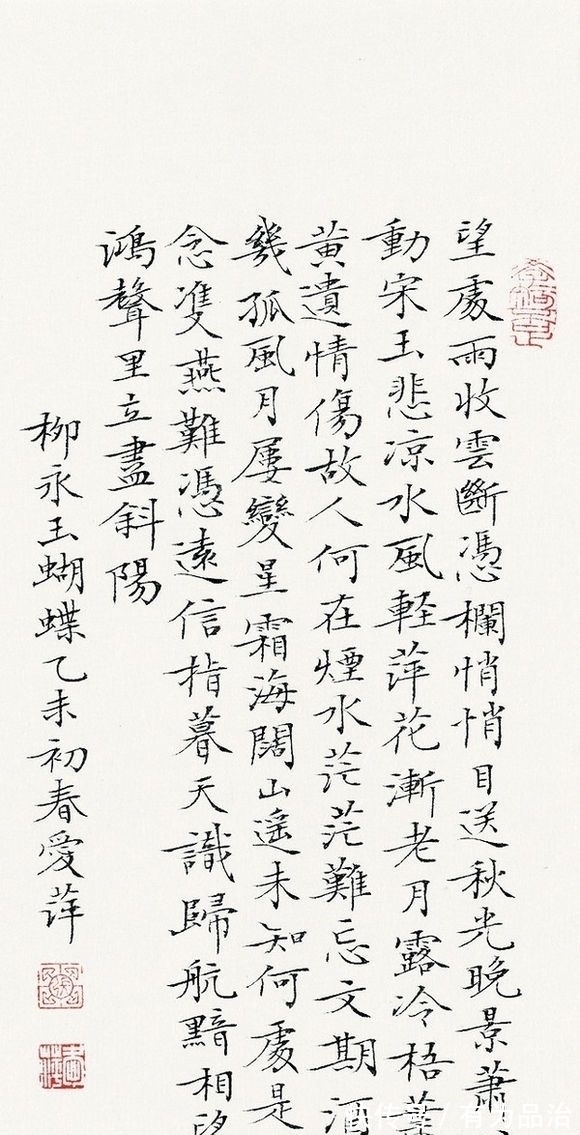 望處雨收雲斷憑欄悄悄目送秋光晚景蕭
動宋玉悲凉水風輕萍花漸老月露冷梧葉
黃遺情傷故人何在煙水茫茫難忘文期酒
幾孤風月屢變星霜海闊山遥未知何處是
念雙燕難憑遠信指暮天識歸航黯相望
鴻聲里立盡斜陽
柳永玉蝴蝶乙未初春愛萍
有力品治